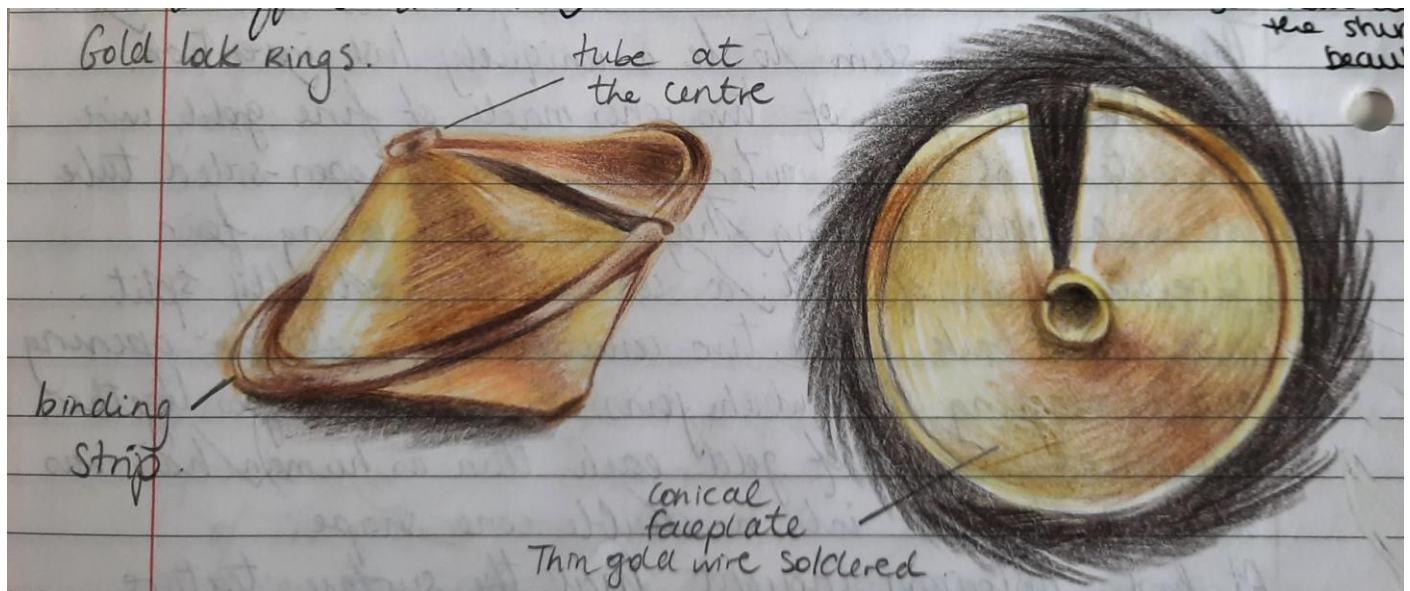 Gold lock Rings.
tube at
the centre
the
binding
strip.
conical
faceplate
Thin gold wire soldered